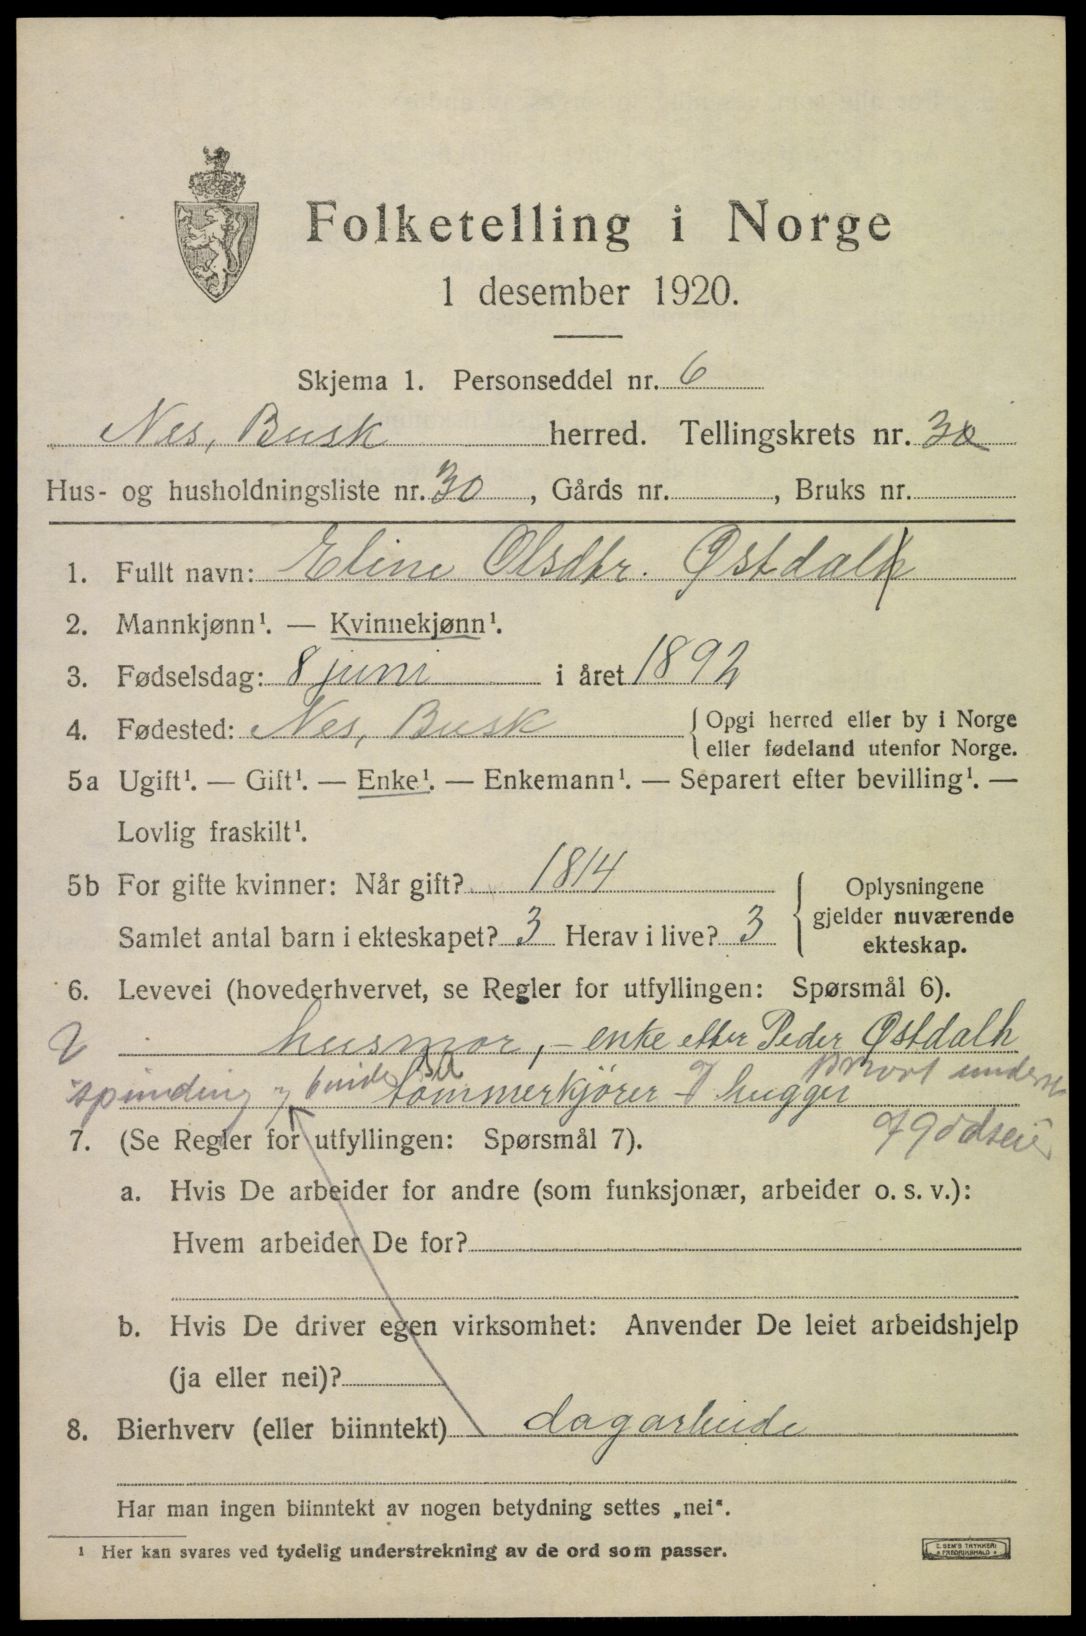 Folketelling i Norge
1 desember 1920.
Skjema 1. Personseddel nr. 6
Nes, Busk herred. Tellingskrets nr. 3
Hus- og husholdningsliste nr. 30, Gårds nr. , Bruks nr.
1. Fullt navn: Eline Olsdtr. Østdalh
2. Mannkjønn¹. — Kvinnekjønn¹.
3. Fødselsdag: 8 juni i året 1892
4. Fødested: Nes, Busk {Opgi herred eller by i Norge
eller fødeland utenfor Norge.
5a Ugift¹. — Gift¹. — Enke¹. — Enkemann¹. — Separert efter bevilling¹. —
Lovlig fraskilt¹.
5b For gifte kvinner: Når gift? 1814
Samlet antal barn i ekteskapet? 3 Herav i live? 3
{Oplysningene
gjelder nuværende
ekteskap.
6. Levevei (hovederhvervet, se Regler for utfyllingen: Spørsmål 6).
husmor, – enke etter Peder Østdalh
spinding og tømmerkjører og hugger
7. (Se Regler for utfyllingen: Spørsmål 7).
a. Hvis De arbeider for andre (som funksjonær, arbeider o. s. v.):
Hvem arbeider De for?
b. Hvis De driver egen virksomhet: Anvender De leiet arbeidshjelp
(ja eller nei)?
8. Bierhverv (eller biinntekt) dagarbeide
Har man ingen biinntekt av nogen betydning settes „nei“.
¹ Her kan svares ved tydelig understrekning av de ord som passer.
C. SEM'S TRYKKERI
FREDRIKSHALD